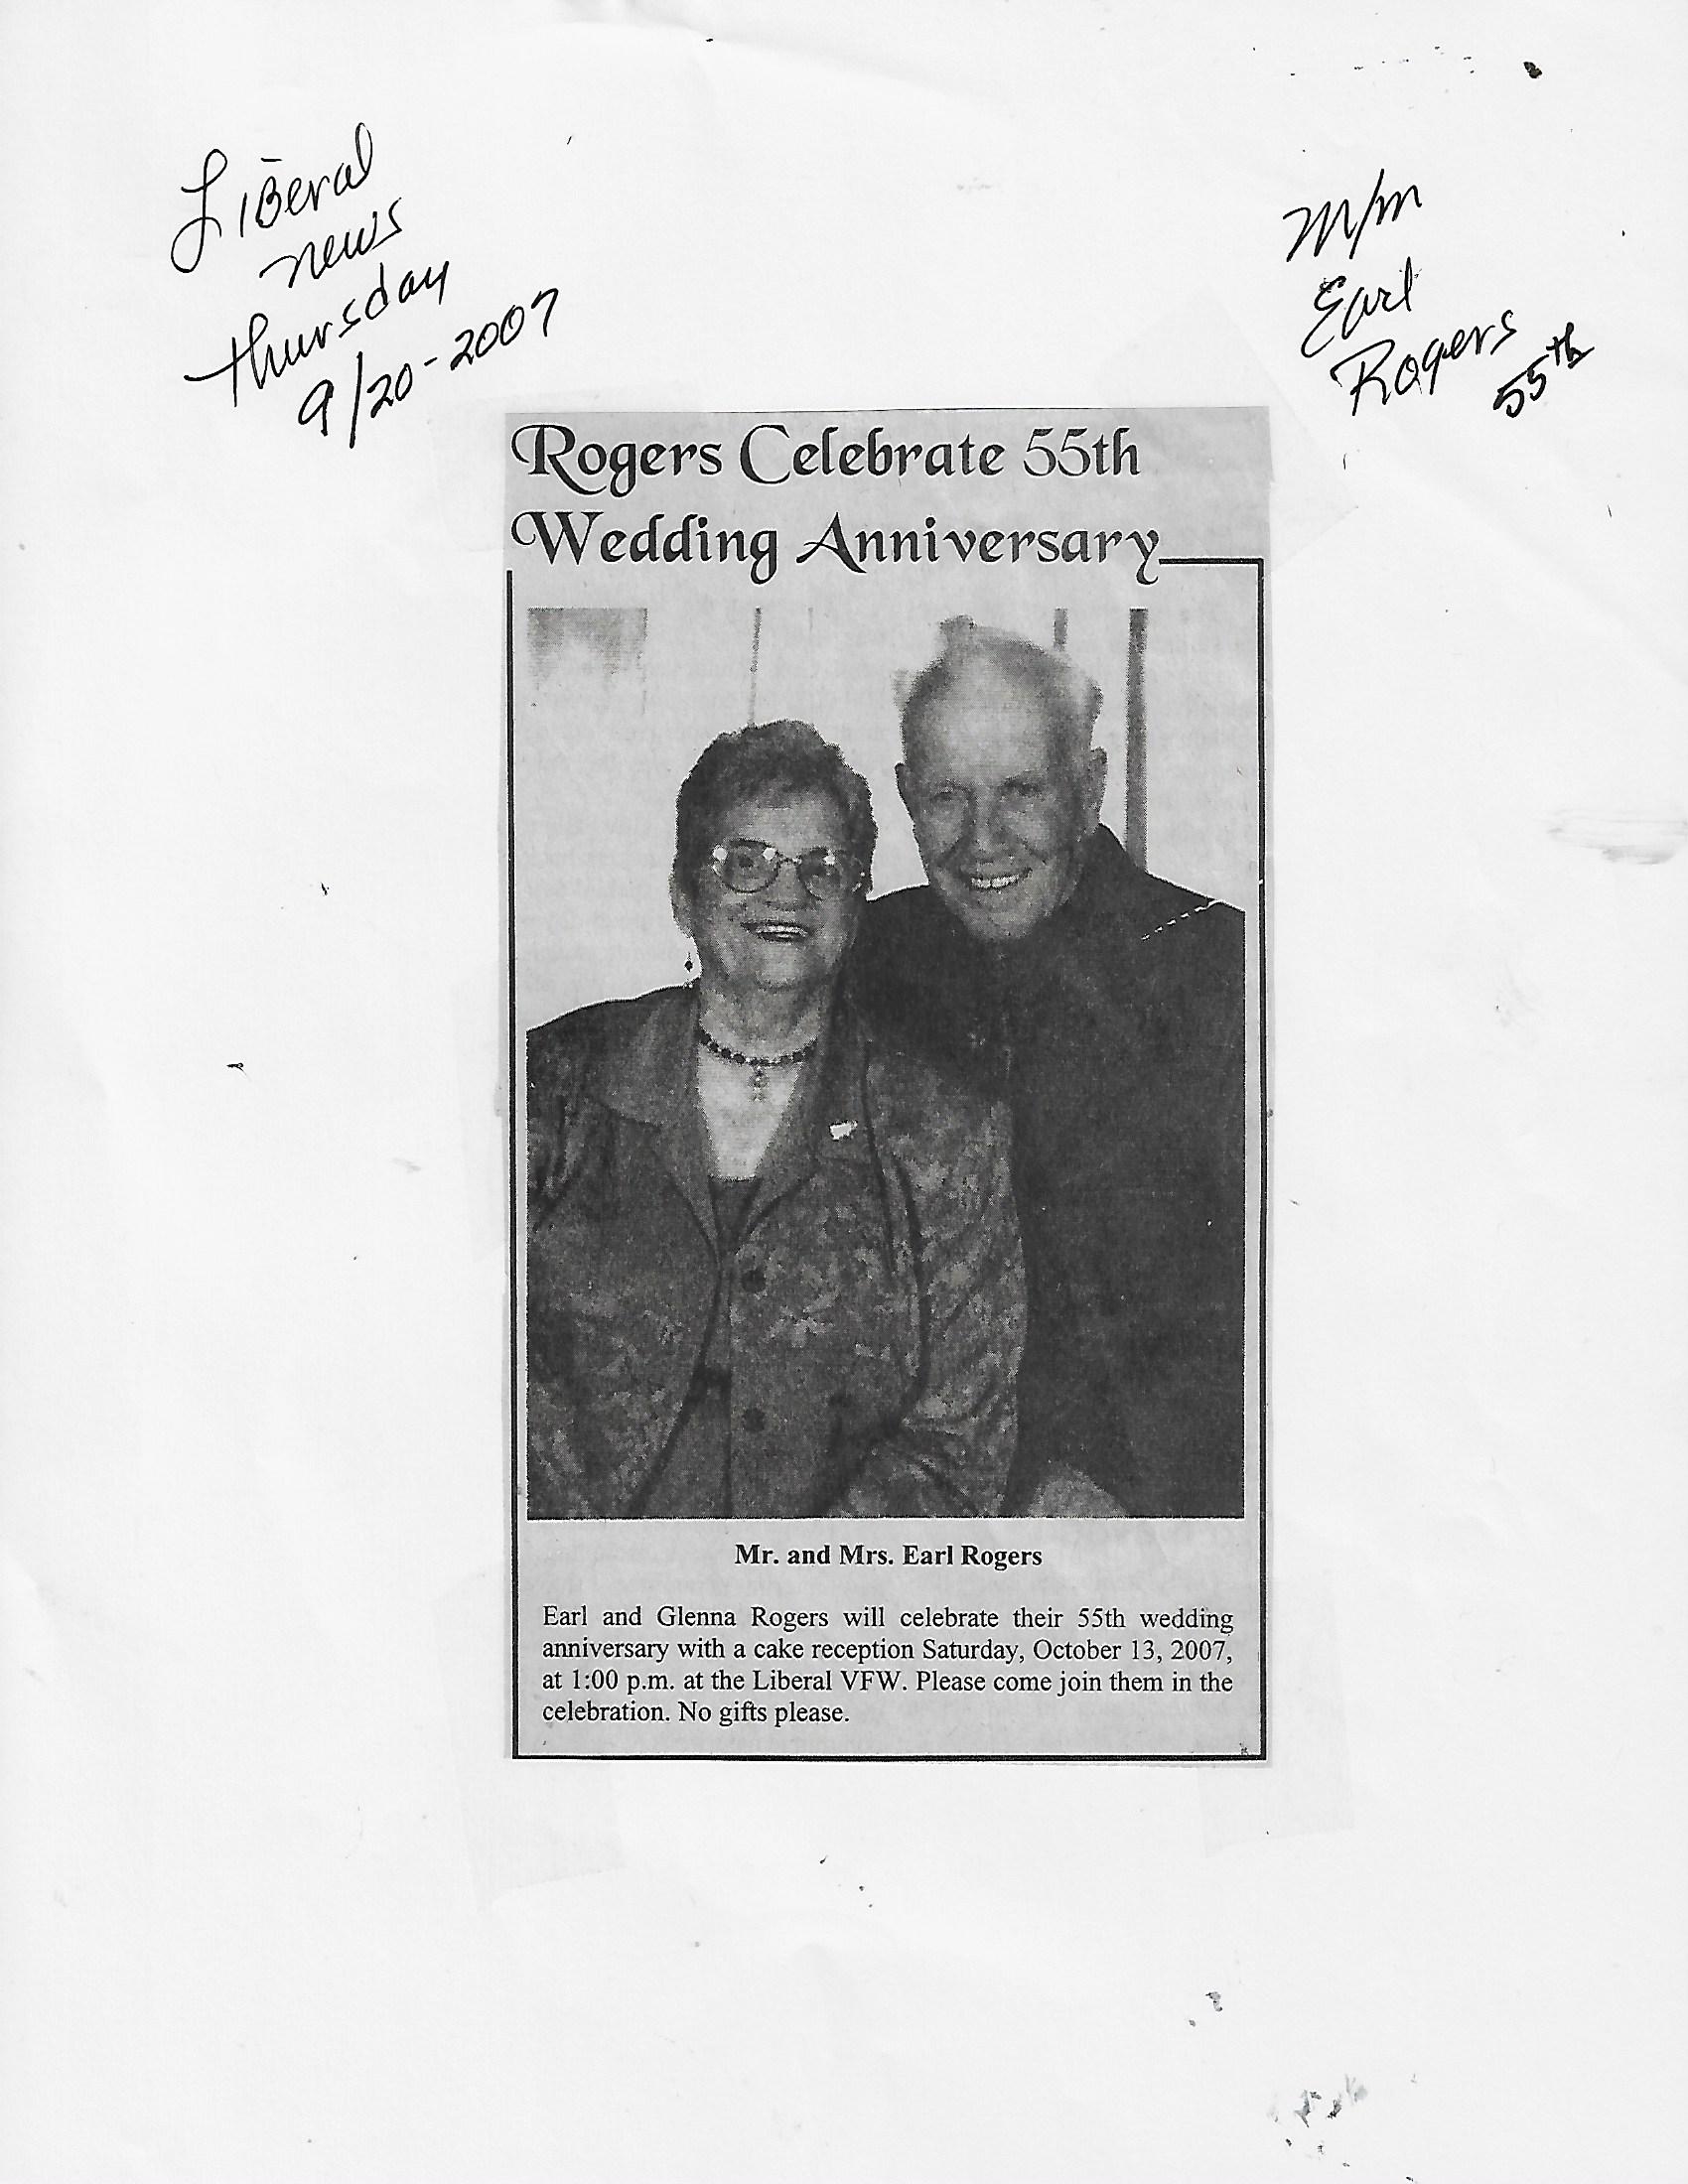 Liberal
news
Thursday
9/20-2007
M/m
Earl
Rogers
55th
Rogers Celebrate 55th
Wedding Anniversary
Mr. and Mrs. Earl Rogers
Earl and Glenna Rogers will celebrate their 55th wedding
anniversary with a cake reception Saturday, October 13, 2007,
at 1:00 p.m. at the Liberal VFW. Please come join them in the
celebration. No gifts please.